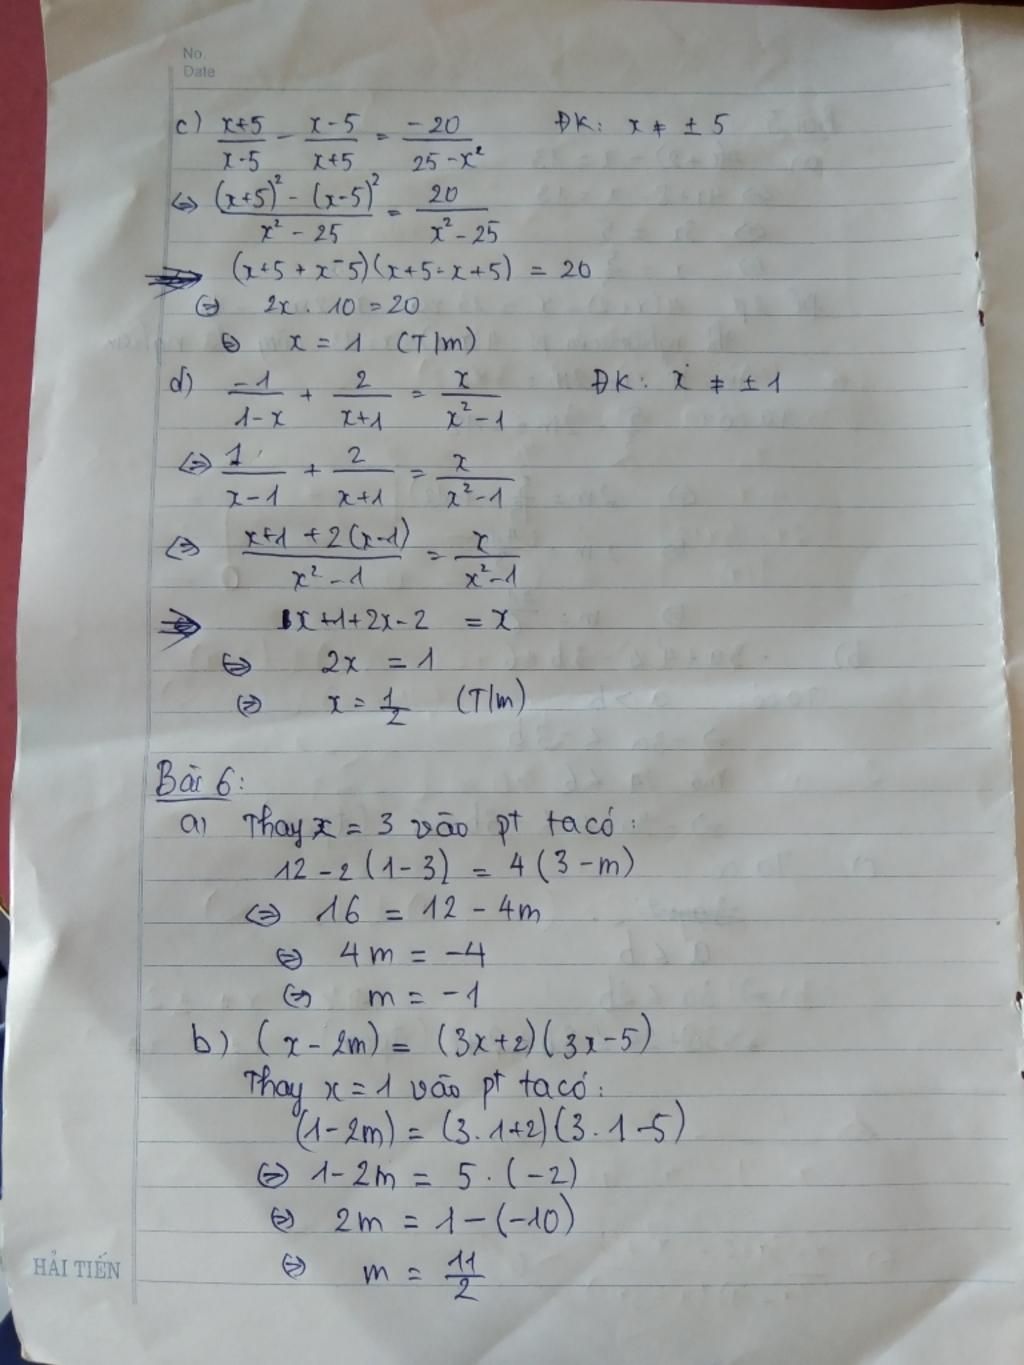 No.
Date
c) \frac{x+5}{x-5} - \frac{x-5}{x+5} = \frac{-20}{25-x²} ĐK: x ≠ ± 5
⇔ \frac{(x+5)² - (x-5)²}{x² - 25} = \frac{20}{x² - 25}
⇒ (x+5 + x-5)(x+5-x+5) = 20
⇔ 2x . 10 = 20
⇔ x = 1 (T/m)
d) \frac{-1}{1-x} + \frac{2}{x+1} = \frac{x}{x²-1} ĐK: x ≠ ± 1
⇔ \frac{1}{x-1} + \frac{2}{x+1} = \frac{x}{x²-1}
⇔ \frac{x+1 + 2(x-1)}{x² - 1} = \frac{x}{x²-1}
⇒ x+1+2x-2 = x
⇔ 2x = 1
⇔ x = \frac{1}{2} (T/m)
Bài 6:
a) Thay x = 3 vào pt ta có:
12 - 2(1-3) = 4(3-m)
⇔ 16 = 12 - 4m
⇔ 4m = -4
⇔ m = -1
b) (x - 2m) = (3x+2)(3x-5)
Thay x = 1 vào pt ta có:
(1-2m) = (3.1+2)(3.1-5)
⇔ 1-2m = 5.(-2)
⇔ 2m = 1-(-10)
⇔ m = \frac{11}{2}
HẢI TIẾN